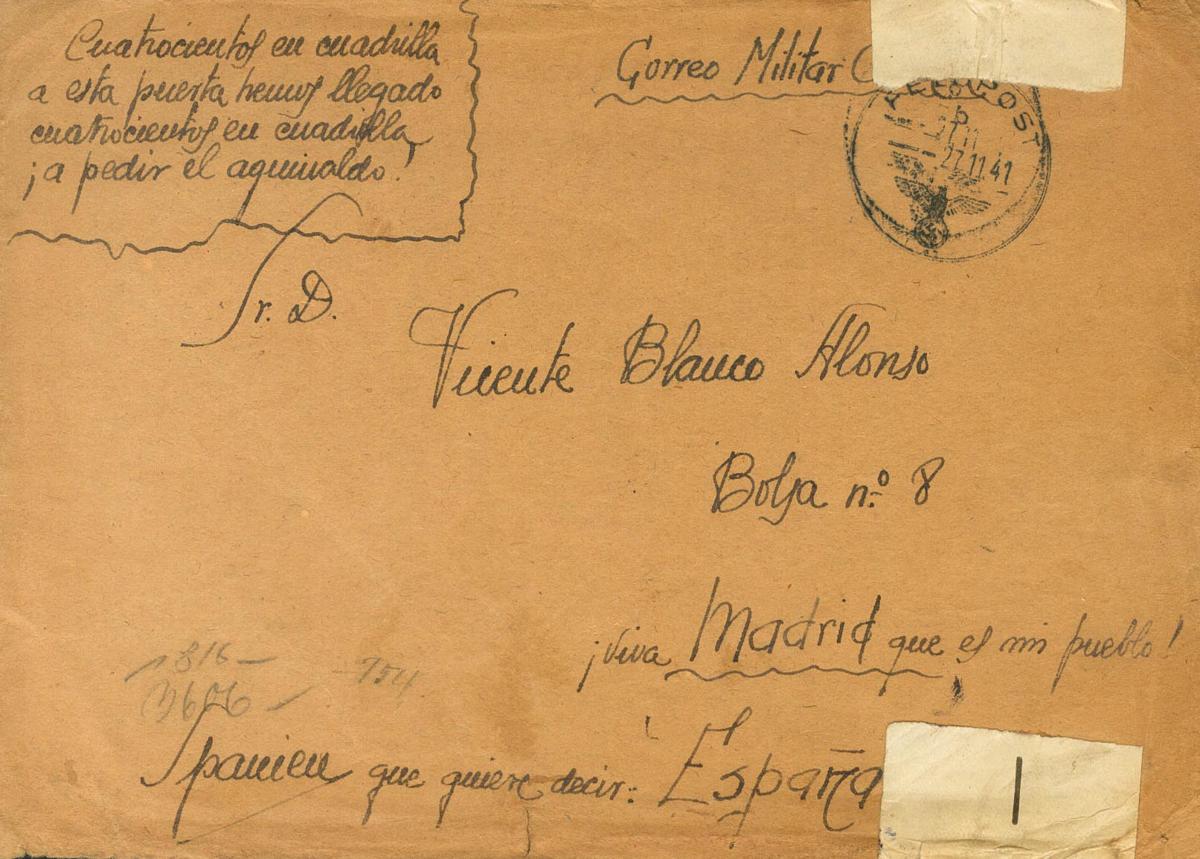 Cuatrocientos en cuadrilla
a esta puerta hemos llegado
cuatrocientos en cuadrilla
¡a pedir el aguinaldo!
Correo Militar
FELDPOST
b
27.11.41
Sr. D.
Vicente Blanco Alonso
Bolsa n.º 8
¡Viva Madrid que es mi pueblo!
816 —
754
3606 —
Spanien que quiere decir: España